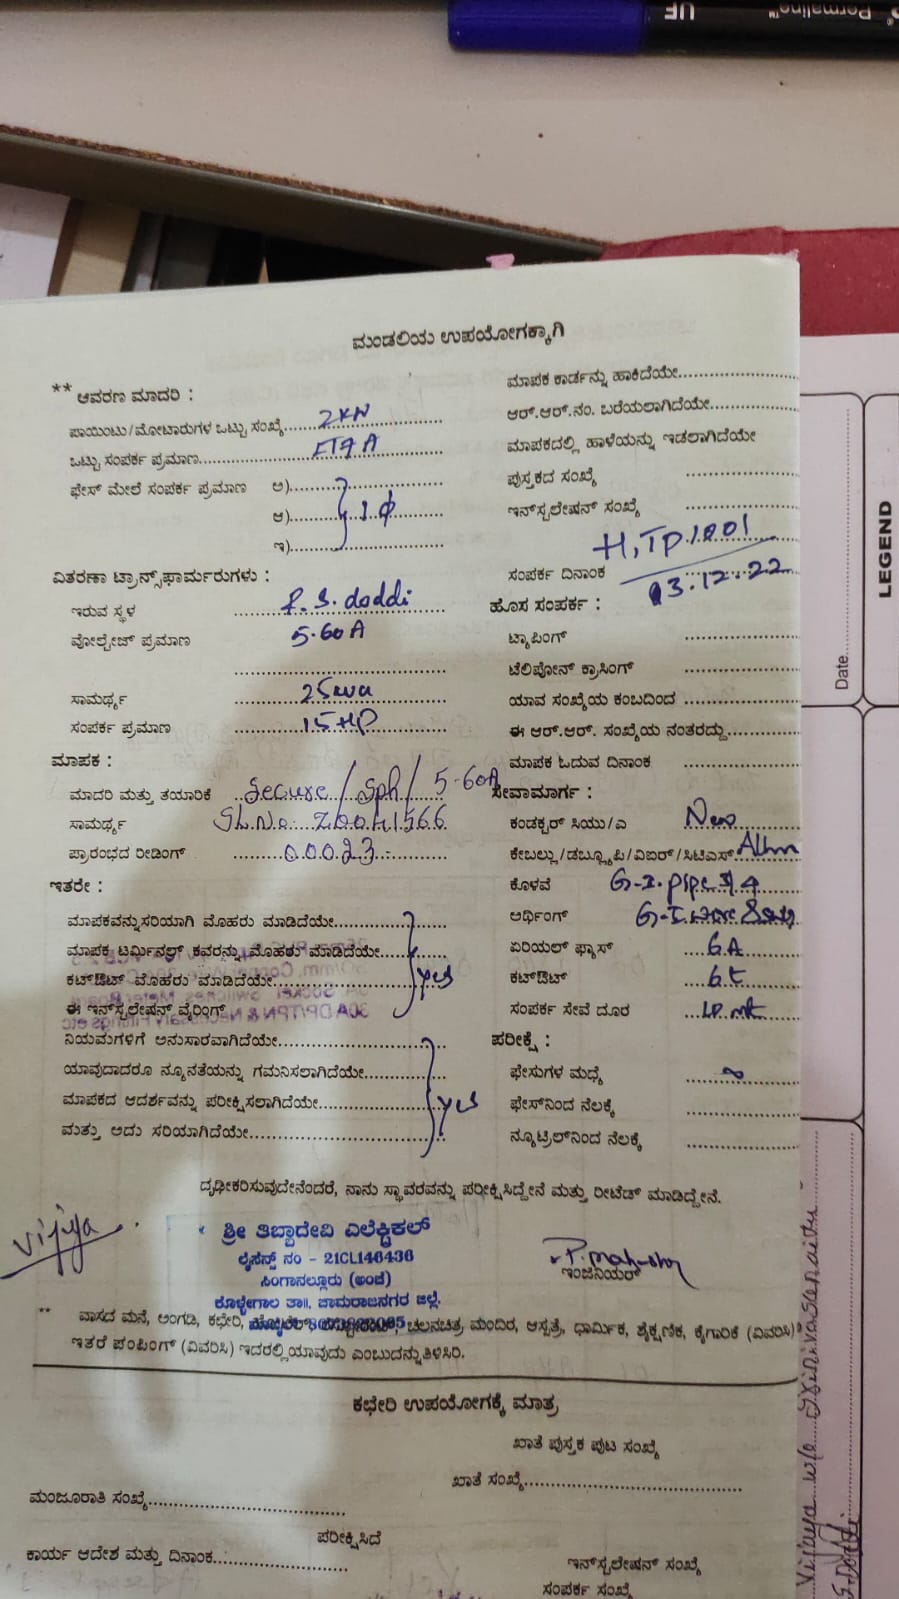 Permaline™
UF
ಮಂಡಲಿಯ ಉಪಯೋಗಕ್ಕಾಗಿ
** ಆವರಣ ಮಾದರಿ :
ಪಾಯಿಂಟು/ಮೋಟಾರುಗಳ ಒಟ್ಟು ಸಂಖ್ಯೆ 2KW
ಒಟ್ಟು ಸಂಪರ್ಕ ಪ್ರಮಾಣ
ಫೇಸ್ ಮೇಲೆ ಸಂಪರ್ಕ ಪ್ರಮಾಣ ಅ)
ಆ) 1φ
ಇ)
ವಿತರಣಾ ಟ್ರಾನ್ಸ್‌ಫಾರ್ಮರುಗಳು :
ಇರುವ ಸ್ಥಳ doddi
ವೋಲ್ಟೇಜ್ ಪ್ರಮಾಣ 5-60A
ಸಾಮರ್ಥ್ಯ
ಸಂಪರ್ಕ ಪ್ರಮಾಣ 15HP
ಮಾಪಕ :
ಮಾದರಿ ಮತ್ತು ತಯಾರಿಕೆ Secure/Sph/5-60A
ಸಾಮರ್ಥ್ಯ SL.No:
ಪ್ರಾರಂಭದ ರೀಡಿಂಗ್ 00023
ಇತರೇ :
ಮಾಪಕವನ್ನು ಸರಿಯಾಗಿ ಮೊಹರು ಮಾಡಿದೆಯೇ
ಮಾಪಕ ಟರ್ಮಿನಲ್ ಕವರನ್ನು ಮೊಹರು ಮಾಡಿದೆಯೇ
ಕಟ್‌ಔಟ್ ಮೊಹರು ಮಾಡಿದೆಯೇ yes
ಈ ಇನ್‌ಸ್ಟಲೇಷನ್ ವೈರಿಂಗ್
ನಿಯಮಗಳಿಗೆ ಅನುಸಾರವಾಗಿದೆಯೇ
ಯಾವುದಾದರೂ ನ್ಯೂನತೆಯನ್ನು ಗಮನಿಸಲಾಗಿದೆಯೇ
ಮಾಪಕದ ಆದರ್ಶವನ್ನು ಪರೀಕ್ಷಿಸಲಾಗಿದೆಯೇ yes
ಮತ್ತು ಅದು ಸರಿಯಾಗಿದೆಯೇ
ಮಾಪಕ ಕಾರ್ಡನ್ನು ಹಾಕಿದೆಯೇ
ಆರ್.ಆರ್.ನಂ. ಬರೆಯಲಾಗಿದೆಯೇ
ಮಾಪಕದಲ್ಲಿ ಹಾಳೆಯನ್ನು ಇಡಲಾಗಿದೆಯೇ
ಪುಸ್ತಕದ ಸಂಖ್ಯೆ
ಇನ್‌ಸ್ಟಲೇಷನ್ ಸಂಖ್ಯೆ
ಸಂಪರ್ಕ ದಿನಾಂಕ 03.12.22
ಹೊಸ ಸಂಪರ್ಕ :
ಟ್ಯಾಪಿಂಗ್
ಟೆಲಿಪೋನ್ ಕ್ರಾಸಿಂಗ್
ಯಾವ ಸಂಖ್ಯೆಯ ಕಂಬದಿಂದ
ಈ ಆರ್.ಆರ್. ಸಂಖ್ಯೆಯ ನಂತರದ್ದು
ಮಾಪಕ ಓದುವ ದಿನಾಂಕ
ಸೇವಾಮಾರ್ಗ :
ಕಂಡಕ್ಟರ್ ಸಿಯು/ಎ
ಕೇಬಲ್ಲು/ಡಬ್ಲ್ಯೂಪಿ/ವಿಐಆರ್/ಸಿಟಿಎಸ್
ಕೊಳವೆ G-I.pipe 3/4
ಅರ್ಥಿಂಗ್ G-I
ಏರಿಯಲ್ ಫ್ಯಾಸ್ 6A
ಕಟ್‌ಔಟ್
ಸಂಪರ್ಕ ಸೇವೆ ದೂರ
ಪರೀಕ್ಷೆ :
ಫೇಸುಗಳ ಮಧ್ಯೆ ∞
ಫೇಸ್‌ನಿಂದ ನೆಲಕ್ಕೆ
ನ್ಯೂಟ್ರಿಲ್‌ನಿಂದ ನೆಲಕ್ಕೆ
ದೃಢೀಕರಿಸುವುದೇನೆಂದರೆ, ನಾನು ಸ್ಥಾವರವನ್ನು ಪರೀಕ್ಷಿಸಿದ್ದೇನೆ ಮತ್ತು ರೀಟೆಡ್ ಮಾಡಿದ್ದೇನೆ.
ಶ್ರೀ ತಿಬ್ಬಾದೇವಿ ಎಲೆಕ್ಟ್ರಿಕಲ್
ಲೈಸೆನ್ಸ್ ನಂ - 21CL146436
ಸಿಂಗಾನಲ್ಲೂರು (ಅಂಚೆ)
ಕೊಳ್ಳೇಗಾಲ ತಾ॥, ಚಾಮರಾಜನಗರ ಜಿಲ್ಲೆ.
ಇಂಜಿನಿಯರ್
** ವಾಸದ ಮನೆ, ಅಂಗಡಿ, ಕಛೇರಿ, ಚಲನಚಿತ್ರ ಮಂದಿರ, ಆಸ್ಪತ್ರೆ, ಧಾರ್ಮಿಕ, ಶೈಕ್ಷಣಿಕ, ಕೈಗಾರಿಕೆ (ವಿವರಿಸಿ)
ಇತರೆ ಪಂಪಿಂಗ್ (ವಿವರಿಸಿ) ಇದರಲ್ಲಿ ಯಾವುದು ಎಂಬುದನ್ನು ತಿಳಿಸಿರಿ.
ಕಛೇರಿ ಉಪಯೋಗಕ್ಕೆ ಮಾತ್ರ
ಖಾತೆ ಪುಸ್ತಕ ಪುಟ ಸಂಖ್ಯೆ
ಖಾತೆ ಸಂಖ್ಯೆ
ಮಂಜೂರಾತಿ ಸಂಖ್ಯೆ
ಪರೀಕ್ಷಿಸಿದೆ
ಕಾರ್ಯ ಆದೇಶ ಮತ್ತು ದಿನಾಂಕ
ಇನ್‌ಸ್ಟಲೇಷನ್ ಸಂಖ್ಯೆ
ಸಂಪರ್ಕ ಸಂಖ್ಯೆ
LEGEND
Date